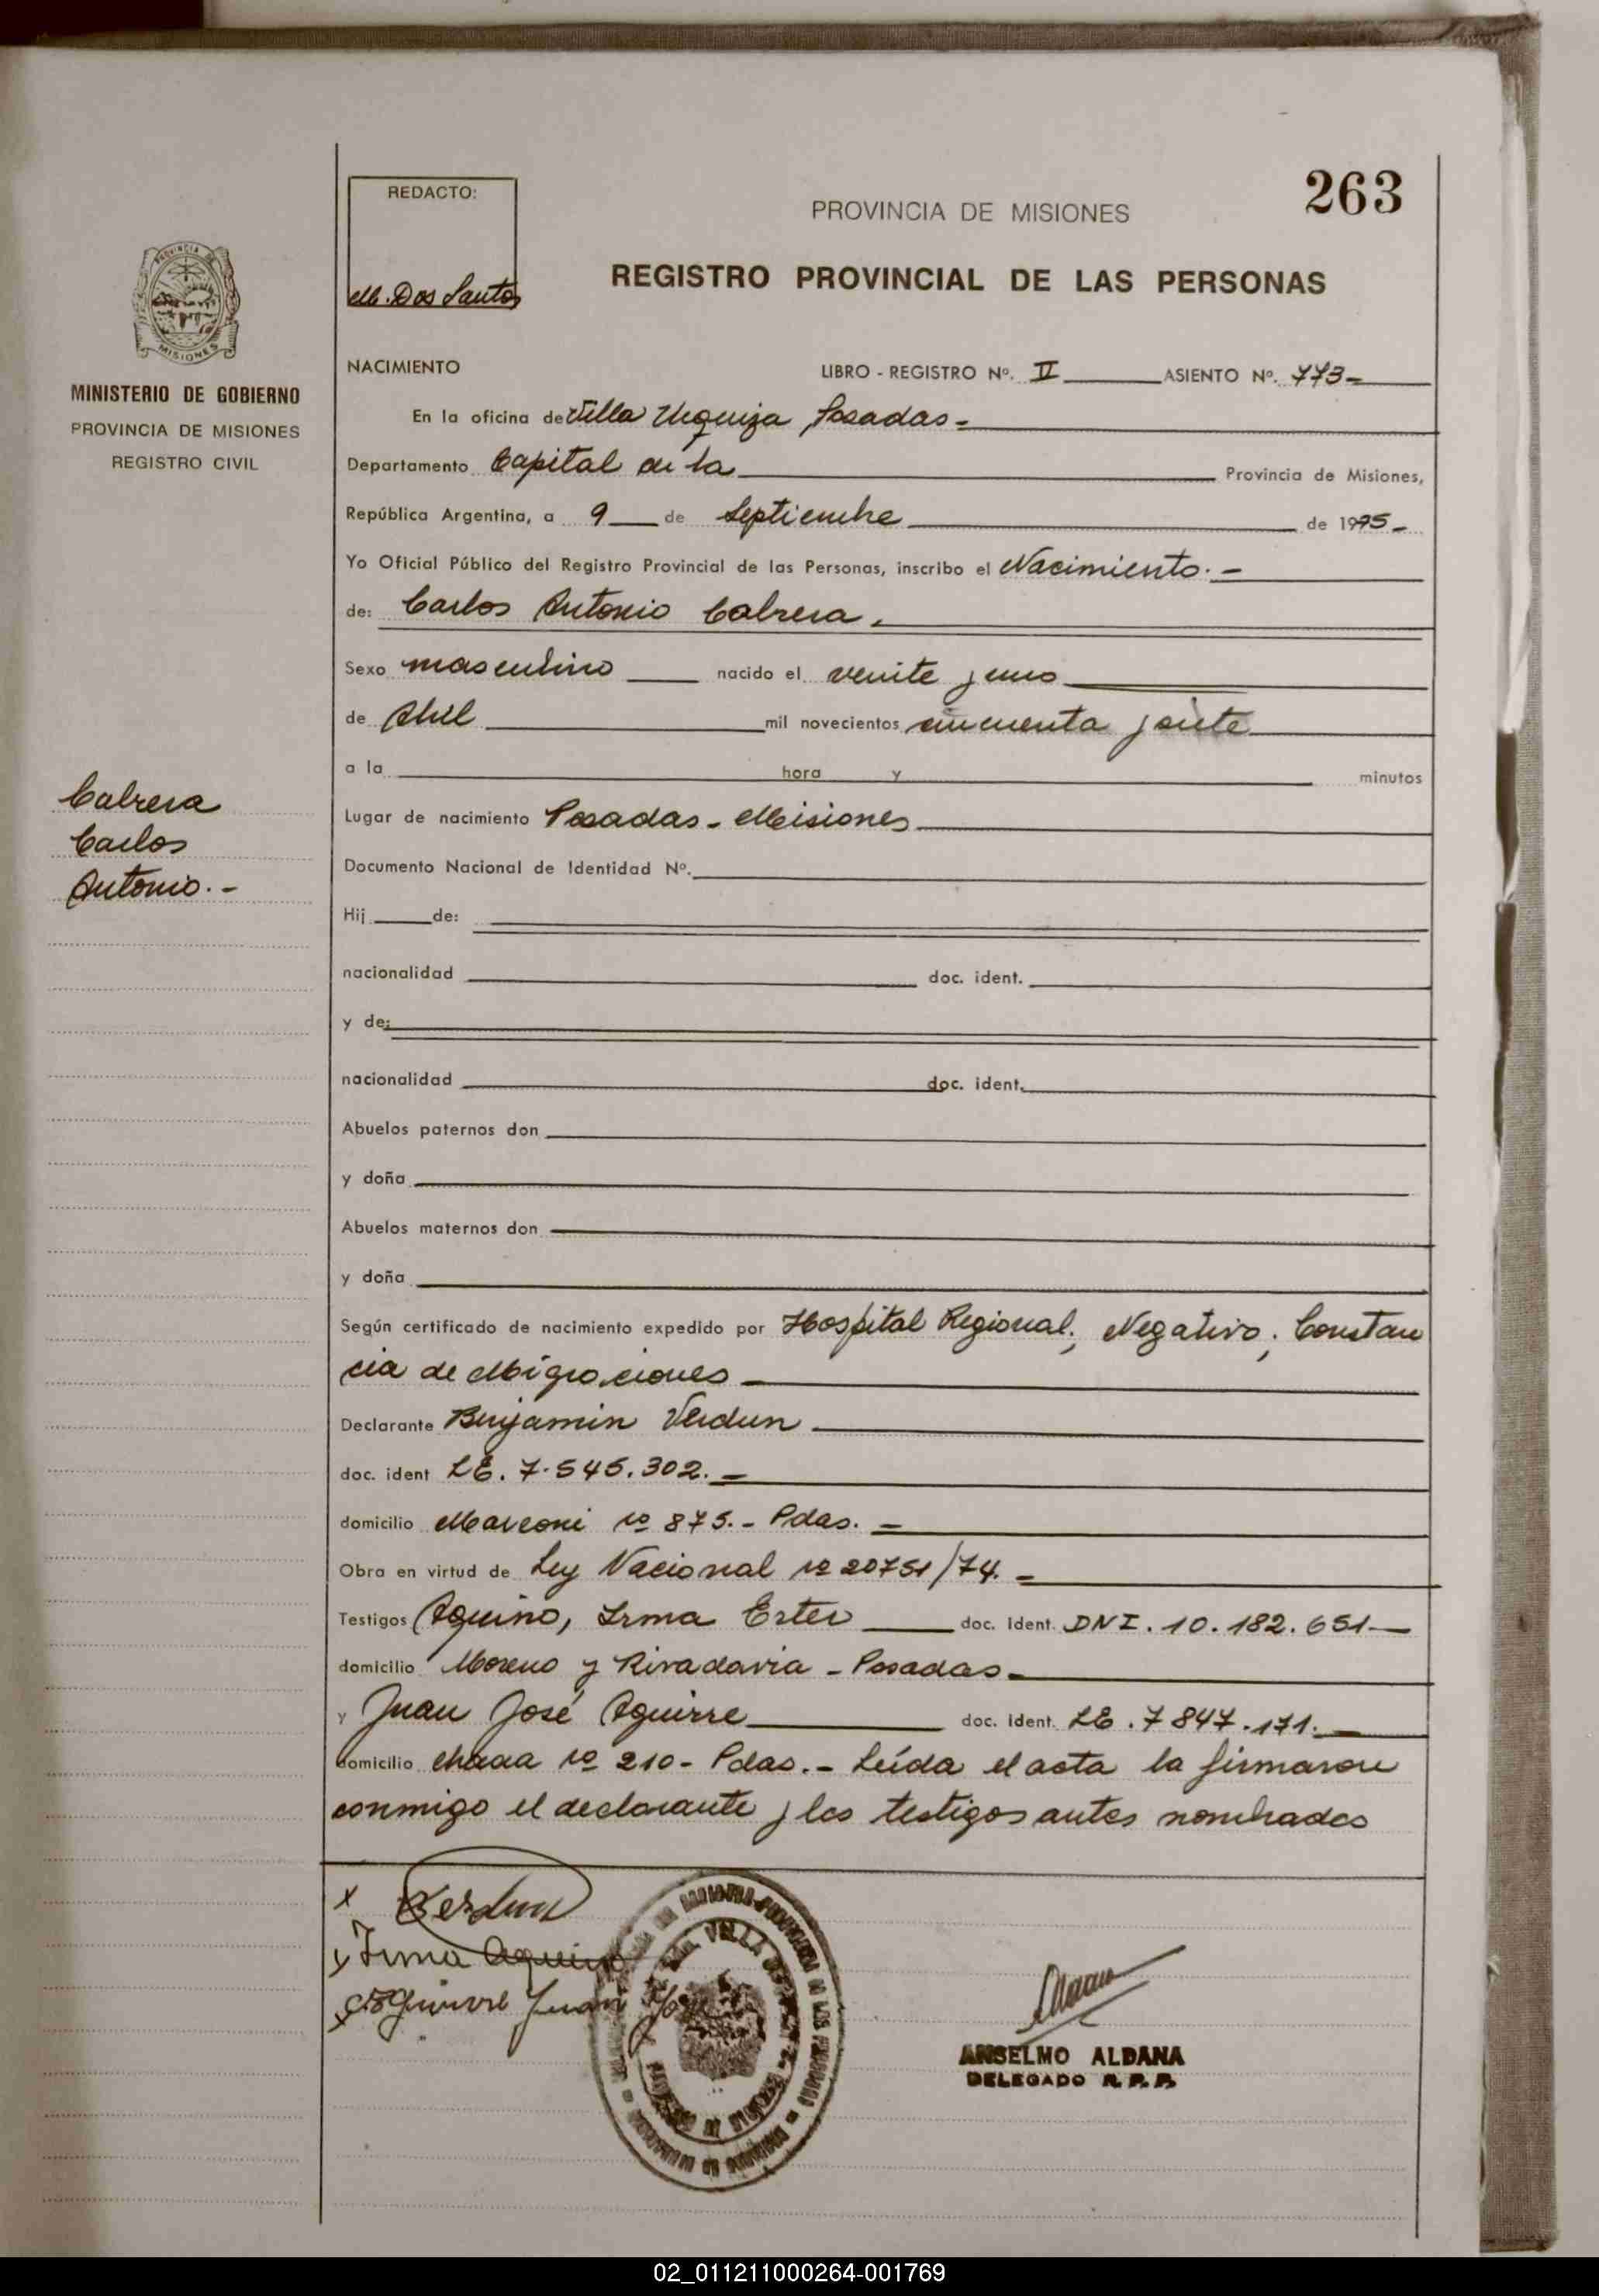 263
REDACTO:
M. Dos Santos
PROVINCIA DE MISIONES
REGISTRO PROVINCIAL DE LAS PERSONAS
PROVINCIA DE
MISIONES
MINISTERIO DE GOBIERNO
PROVINCIA DE MISIONES
REGISTRO CIVIL
Cabrera
Carlos
Antonio.-
NACIMIENTO LIBRO - REGISTRO Nº. II ASIENTO Nº. 773-
En la oficina de Villa Urquiza Posadas.-
Departamento Capital de la Provincia de Misiones,
República Argentina, a 9 de Septiembre de 1975-
Yo Oficial Público del Registro Provincial de las Personas, inscribo el Nacimiento.-
de: Carlos Antonio Cabrera.
Sexo masculino nacido el veinte y uno
de Abril mil novecientos cincuenta y siete
a la hora y minutos
Lugar de nacimiento Posadas - Misiones
Documento Nacional de Identidad Nº.
Hij de:
nacionalidad doc. ident.
y de:
nacionalidad doc. ident.
Abuelos paternos don
y doña
Abuelos maternos don
y doña
Según certificado de nacimiento expedido por Hospital Regional; Negativo; Constan
cia de Migraciones -
Declarante Benjamin Verdun
doc. ident LE. 7.545.302.-
domicilio Marconi nº 875.- Pdas. -
Obra en virtud de Ley Nacional nº 20751/74. -
Testigos Aquino, Irma Ester doc. ident. DNI. 10.182.651.-
domicilio Moreno y Rivadavia - Posadas-
y Juan José Aguirre doc. ident. LE. 7847.171.-
domicilio chacra nº 210- Pdas.- Leída el acta la firmaron
conmigo el declarante y los testigos antes nombrados
x Verdun
x Irma Aquino
x Aguirre Juan José
VILLA
ANSELMO ALDANA
DELEGADO R. P. P.
02_011211000264-001769